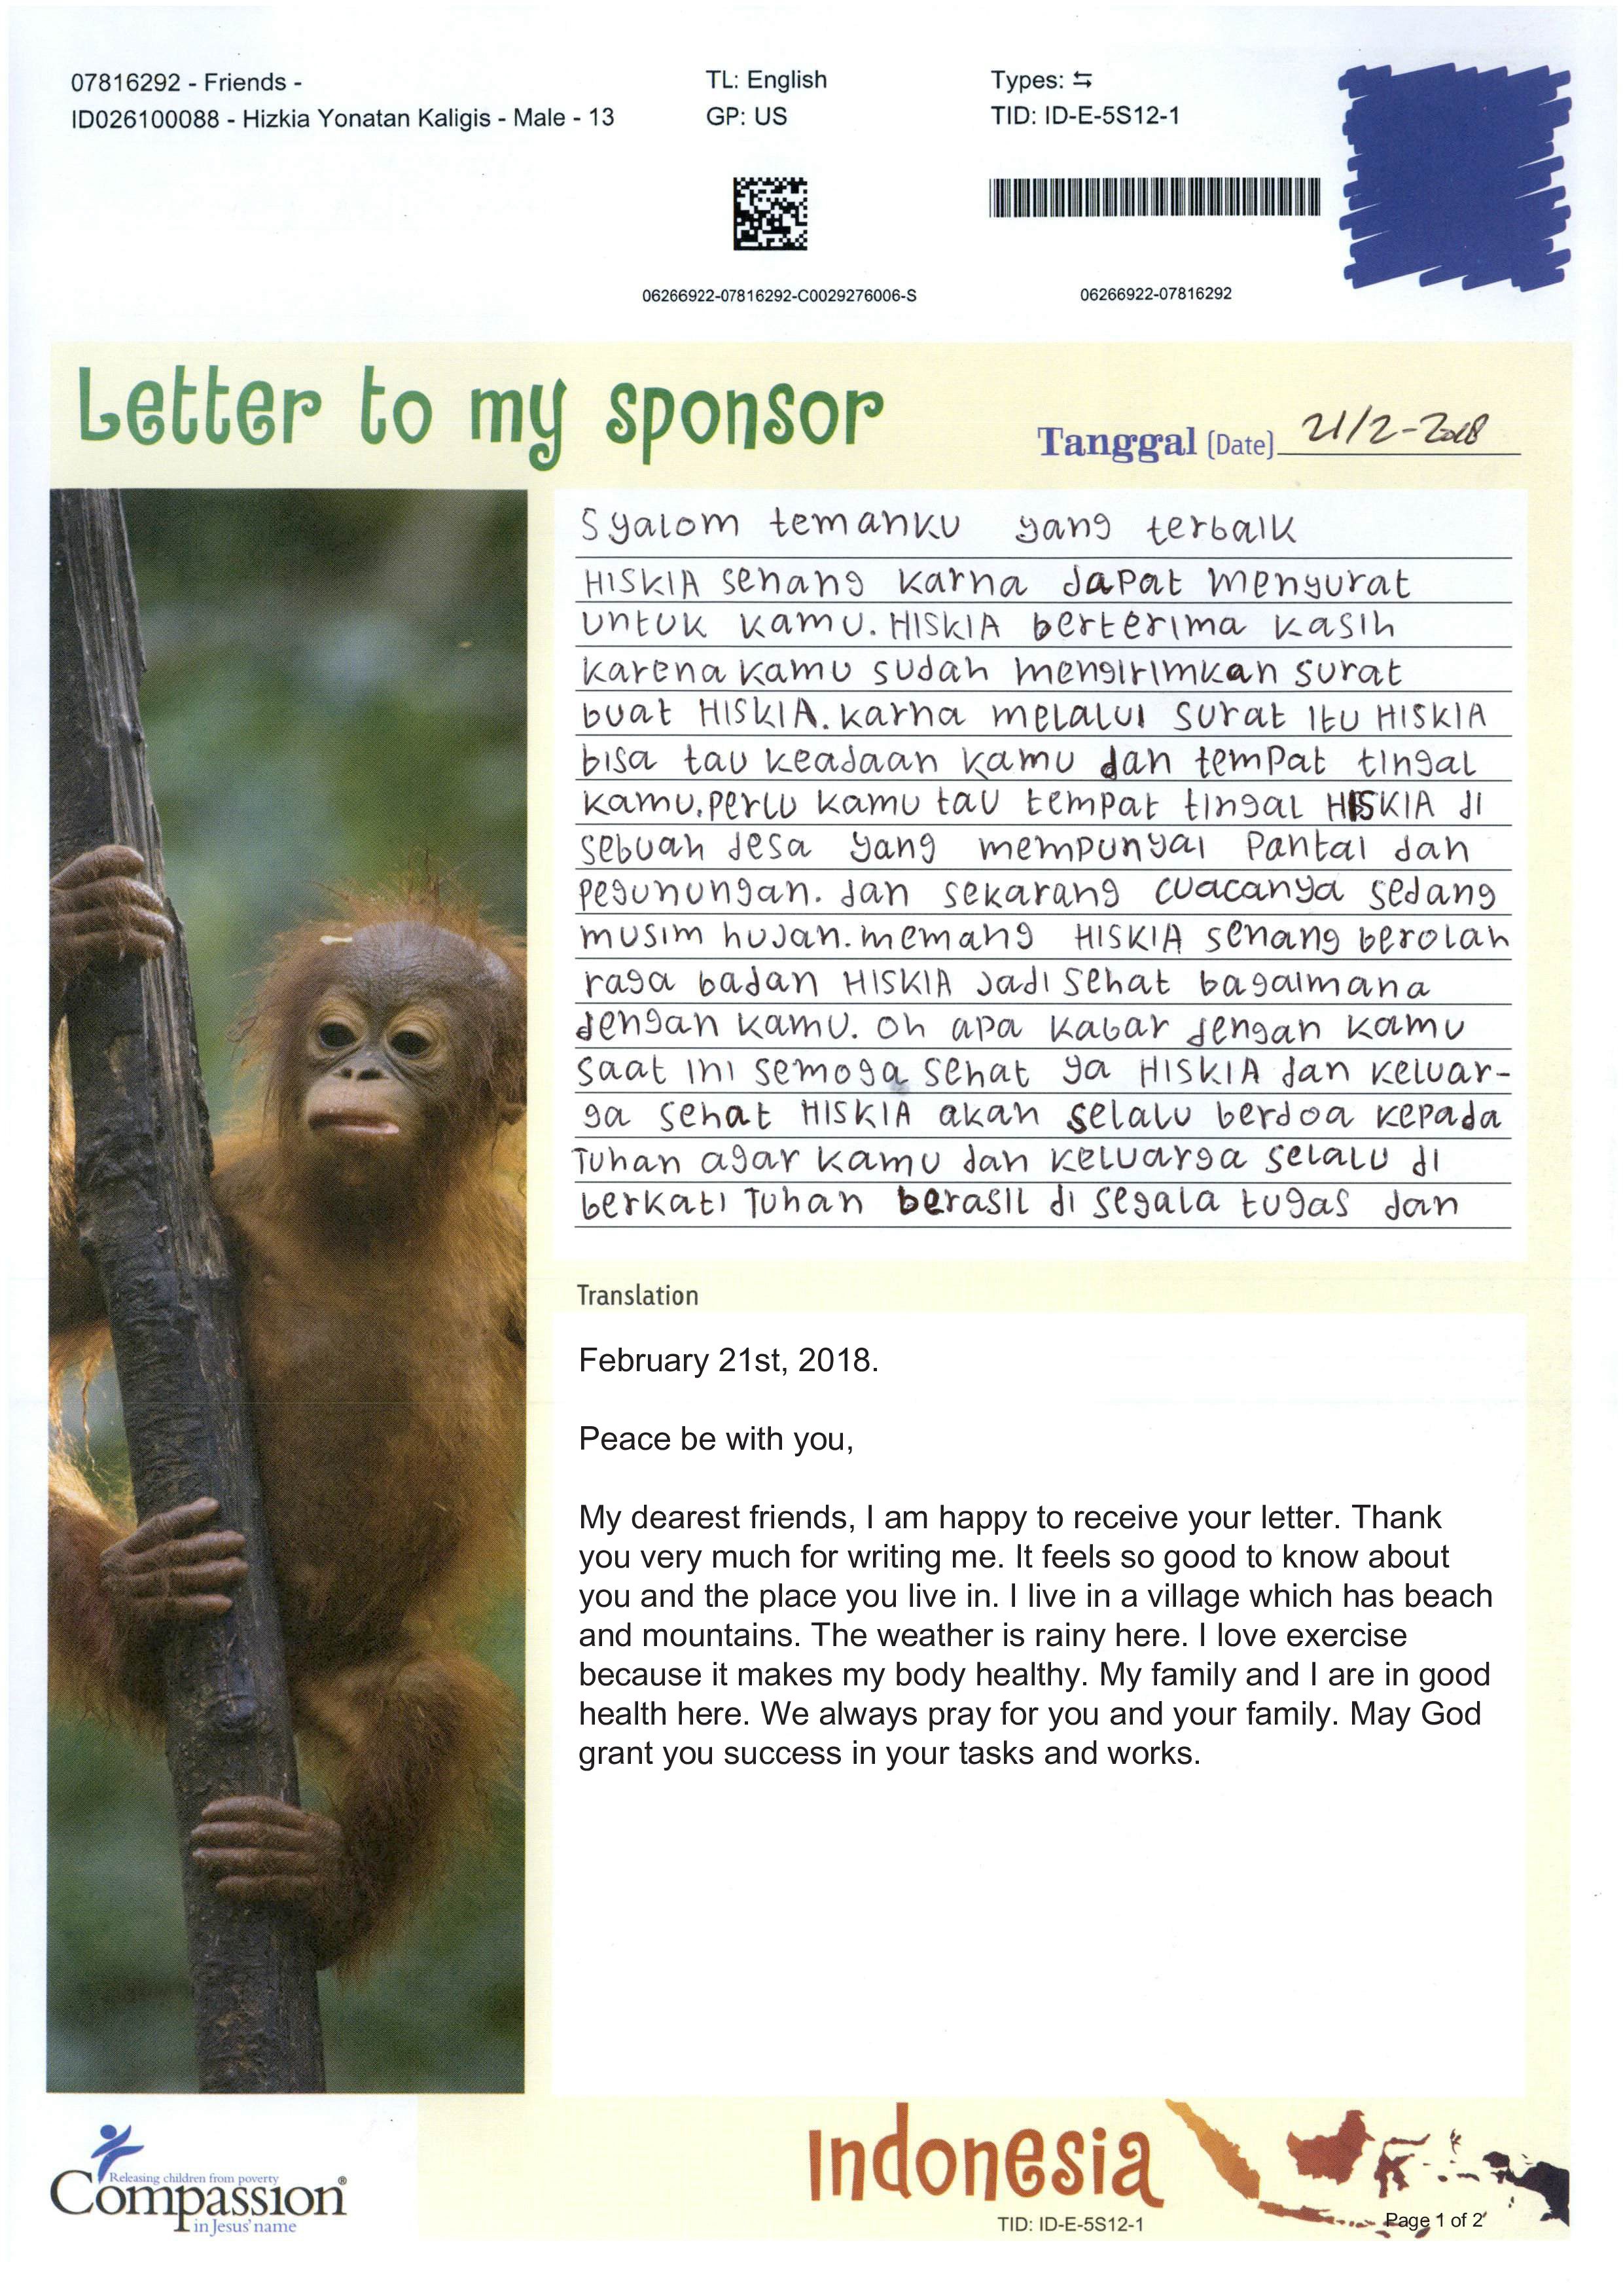 07816292 - Friends -
ID026100088 - Hizkia Yonatan Kaligis - Male - 13
TL: English
GP: US
Types: ⇆
TID: ID-E-5S12-1
06266922-07816292-C0029276006-S
06266922-07816292
Letter to my sponsor
Tanggal (Date) 21/2-2018
Syalom temanku yang terbaik
HISKIA senang karna dapat menyurat
untuk kamu. HISKIA berterima kasih
karena kamu sudah mengirimkan surat
buat HISKIA. karna melalui surat itu HISKIA
bisa tau keadaan kamu dan tempat tingal
kamu. perlu kamu tau tempat tingal HISKIA di
sebuah desa yang mempunyai pantai dan
pegunungan. dan sekarang cuacanya sedang
musim hujan. memang HISKIA senang berolah
raga badan HISKIA jadi sehat bagaimana
dengan kamu. oh apa kabar dengan kamu
saat ini semoga sehat ya HISKIA dan keluar-
ga sehat HISKIA akan selalu berdoa kepada
Tuhan agar kamu dan keluarga selalu di
berkati Tuhan berasil di segala tugas dan
Translation
February 21st, 2018.
Peace be with you,
My dearest friends, I am happy to receive your letter. Thank
you very much for writing me. It feels so good to know about
you and the place you live in. I live in a village which has beach
and mountains. The weather is rainy here. I love exercise
because it makes my body healthy. My family and I are in good
health here. We always pray for you and your family. May God
grant you success in your tasks and works.
Releasing children from poverty
Compassion®
in Jesus' name
Indonesia
TID: ID-E-5S12-1
Page 1 of 2